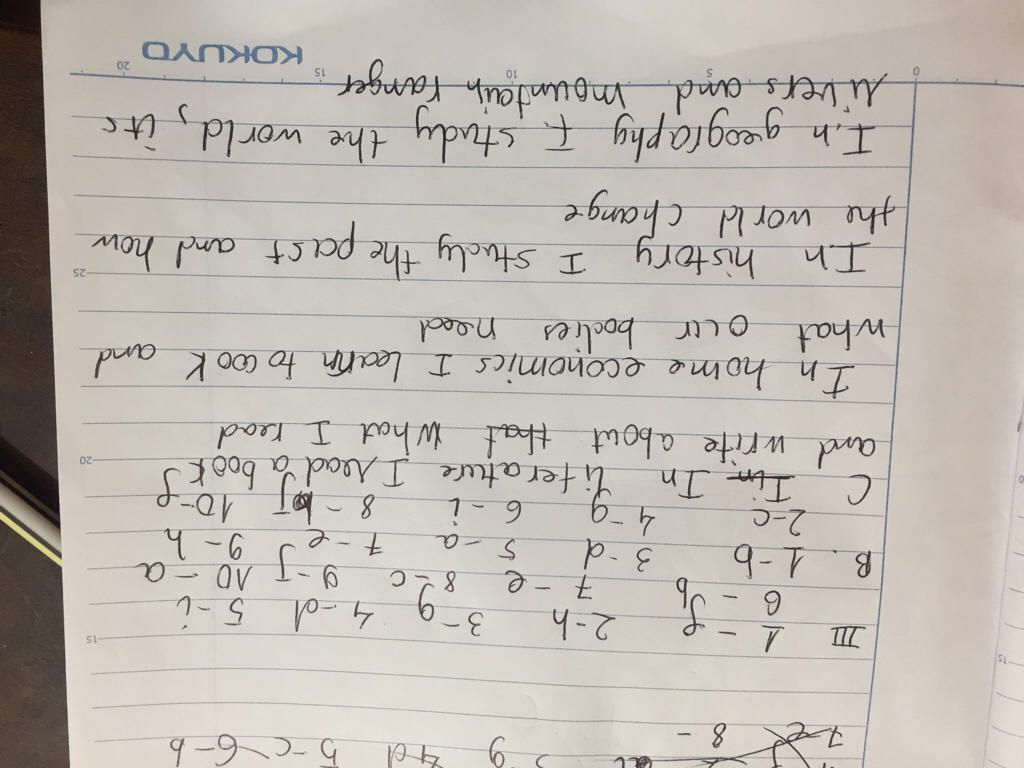 g 4d 5-c 6-b
7-e 8 -
15
III 1 - f 2-h 3-g 4-d 5-i
6 - b 7 - e 8-c 9-j 10 - a
B. 1-b 3-d 5-a 7-e 9-h
2-c 4-g 6-i 8-j 10-f
C In literature I read a book
20
and write about that what I read
In home economics I learn to cook and
what our bodies need
25
In history I study the past and how
the world change
In geography I study the world, its
rivers and mountain ranger
0 5 10 15 20
KOKUYO